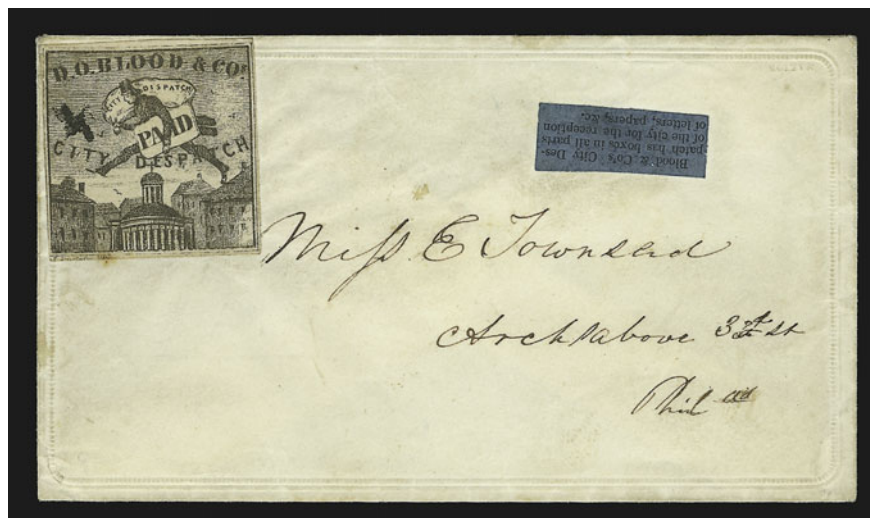 D.O.BLOOD & CO'S
CITY DISPATCH
PAID
CITY DESPATCH
Blood & Co's City Des-
patch has boxes in all parts
of the city for the reception
of letters, papers, &c.
Miss E Townsend
Arch above
St
Phil